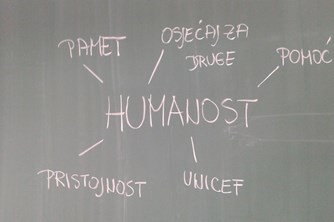 PAMET
OSJEĆAJ ZA
DRUGE
POMOĆ
HUMANOST
PRISTOJNOST
UNICEF